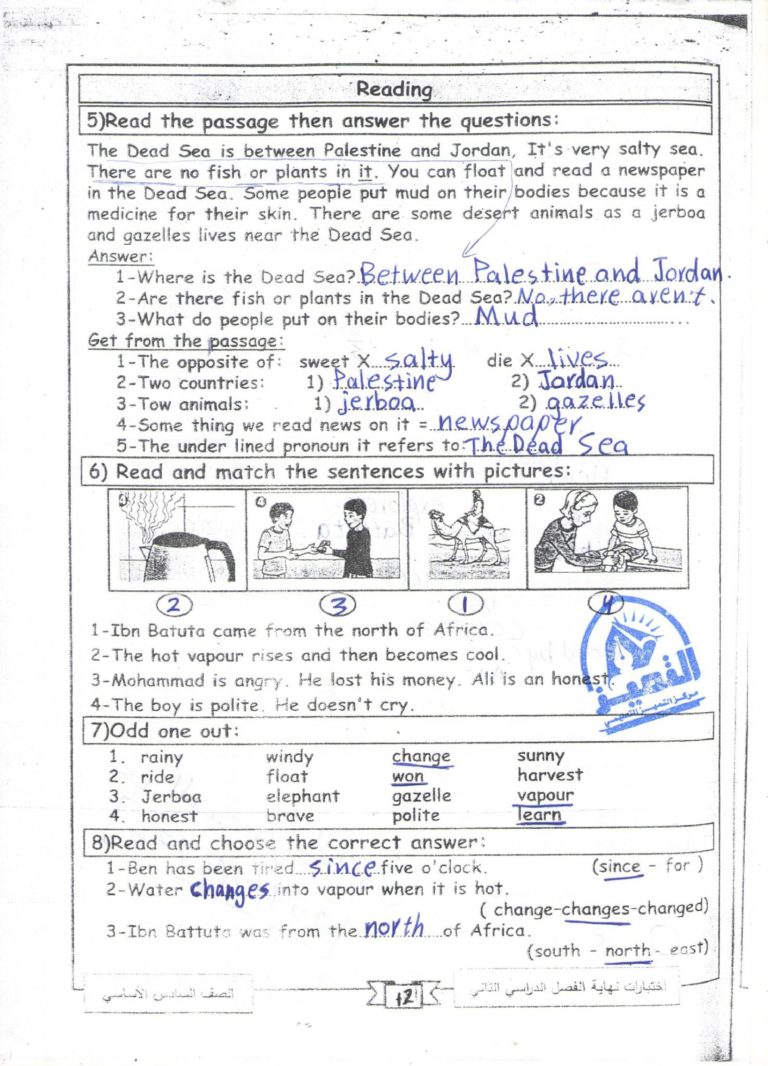 Reading
5)Read the passage then answer the questions:
The Dead Sea is between Palestine and Jordan, It's very salty sea.
There are no fish or plants in it. You can float and read a newspaper
in the Dead Sea. Some people put mud on their bodies because it is a
medicine for their skin. There are some desert animals as a jerboa
and gazelles lives near the Dead Sea.
Answer:
1-Where is the Dead Sea? Between Palestine and Jordan.
2-Are there fish or plants in the Dead Sea? No, there aren't.
3-What do people put on their bodies? Mud
Get from the passage:
1-The opposite of: sweet X salty die X lives
2-Two countries: 1) Palestine 2) Jordan
3-Tow animals: 1) jerboa 2) gazelles
4-Some thing we read news on it = newspaper
5-The under lined pronoun it refers to: The Dead Sea
6) Read and match the sentences with pictures:
4 2
2 3 1 4
1-Ibn Batuta came from the north of Africa.
2-The hot vapour rises and then becomes cool.
3-Mohammad is angry. He lost his money. Ali is an honest.
4-The boy is polite. He doesn't cry.
القميز
مركز التميز التعليمي
7)Odd one out:
1. rainy windy change sunny
2. ride float won harvest
3. Jerboa elephant gazelle vapour
4. honest brave polite learn
8)Read and choose the correct answer:
1-Ben has been tired since five o'clock. (since - for )
2-Water changes into vapour when it is hot.
( change-changes-changed)
3-Ibn Battuta was from the north of Africa.
(south - north - east)
اختبارات نهاية الفصل الدراسي الثاني 12 الصف السادس الأساسي